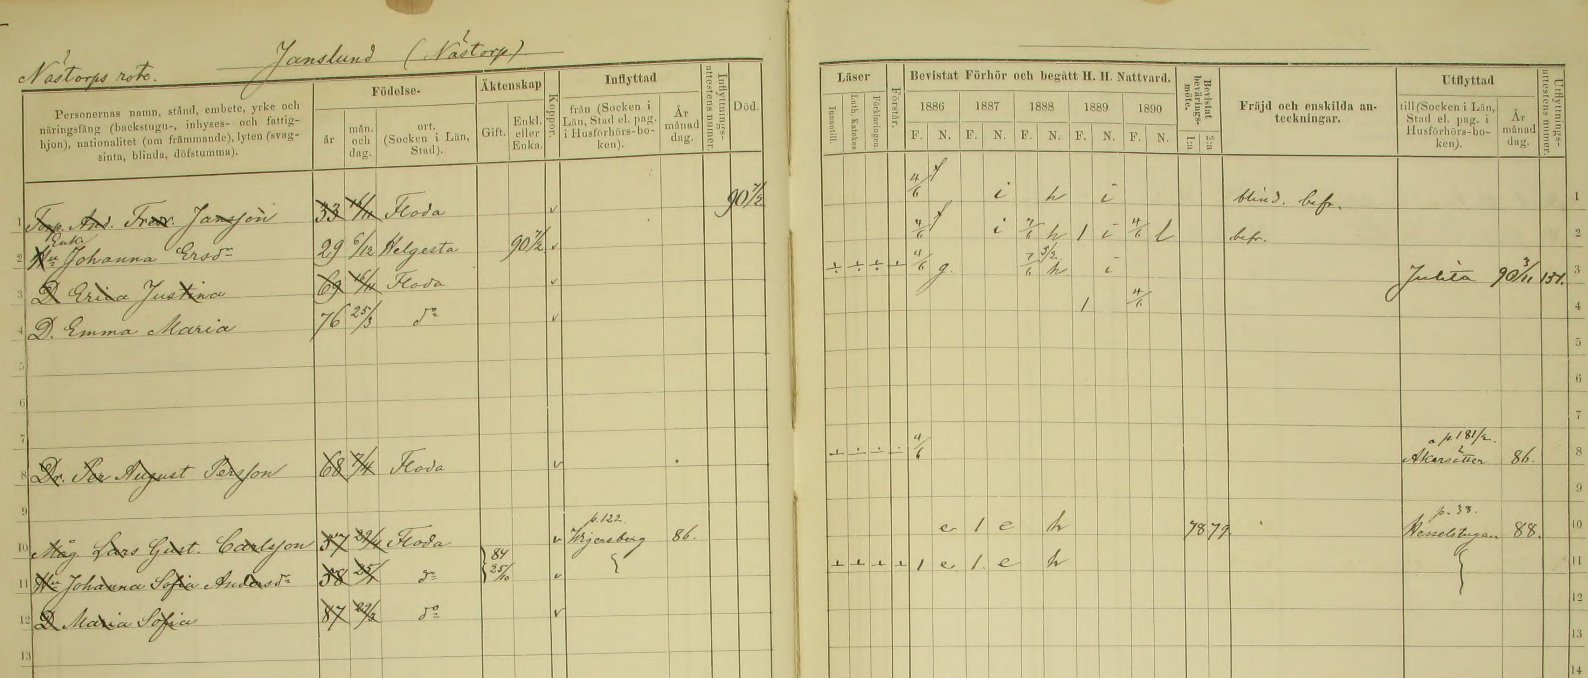 Nästorps rote.
Janslund (Nästorp)
Personernas namn, stånd, embete, yrke och
näringsfång (backstugu-, inhyses- och fattig-
hjon), nationalitet (om främmande), lyten (svag-
sinta, blinda, döfstumma).
Födelse-
år
mån. och dag.
ort. (Socken i Län, Stad).
Äktenskap
Gift.
Enkl. eller Enka.
Koppor.
Inflyttad
från (Socken i Län, Stad el. pag. i Husförhörs-boken).
År månad dag.
Inflyttnings-attestens numer.
Död.
Läser
Innantill.
Luth. Katekes
Förklaringen
Förstår.
Bevistat Förhör och begått H. H. Nattvard.
1886 1887 1888 1889 1890
F. N. F. N. F. N. F. N. F. N.
Bevistat beväringsmöte.
1:a 2:a
Fräjd och enskilda anteckningar.
Utflyttad
till (Socken i Län, Stad el. pag. i Husförhörs-boken).
År månad dag.
Utflyttnings-attestens numer.
1 Torp. And. Fredr. Jansson 33 16/11 Floda v 90 7/2 4/6 i h i blind. befr. 1
Enka
2 Hu Johanna Ersdr 29 6/12 Helgesta 90 7/2 v 4/6 i 7/6 h 1 i 4/6 l befr. 2
3 D. Erica Justina 69 16/11 Floda v 4/6 g. 7/6 h i Julita 90 3/11 151. 3
4 D. Emma Maria 76 25/3 do v 1 4/6 4
5 5
6 6
7 7
p. 181/2.
8 Dr. Per August Persson 68 7/4 Floda v 4/6 Åkersätter 86. 8
9 9
p. 122. p. 38.
10 Måg Lars Gust. Carlsson 57 Floda v 86. e 1 e h 78 79 Hesselstugan 88. 10
84 25/10
11 Hu Johanna Sofia Andersdr 58 25/1 do v 1 e 1. e h 11
12 D Maria Sofia 87 29/3 do v 12
13 13
14